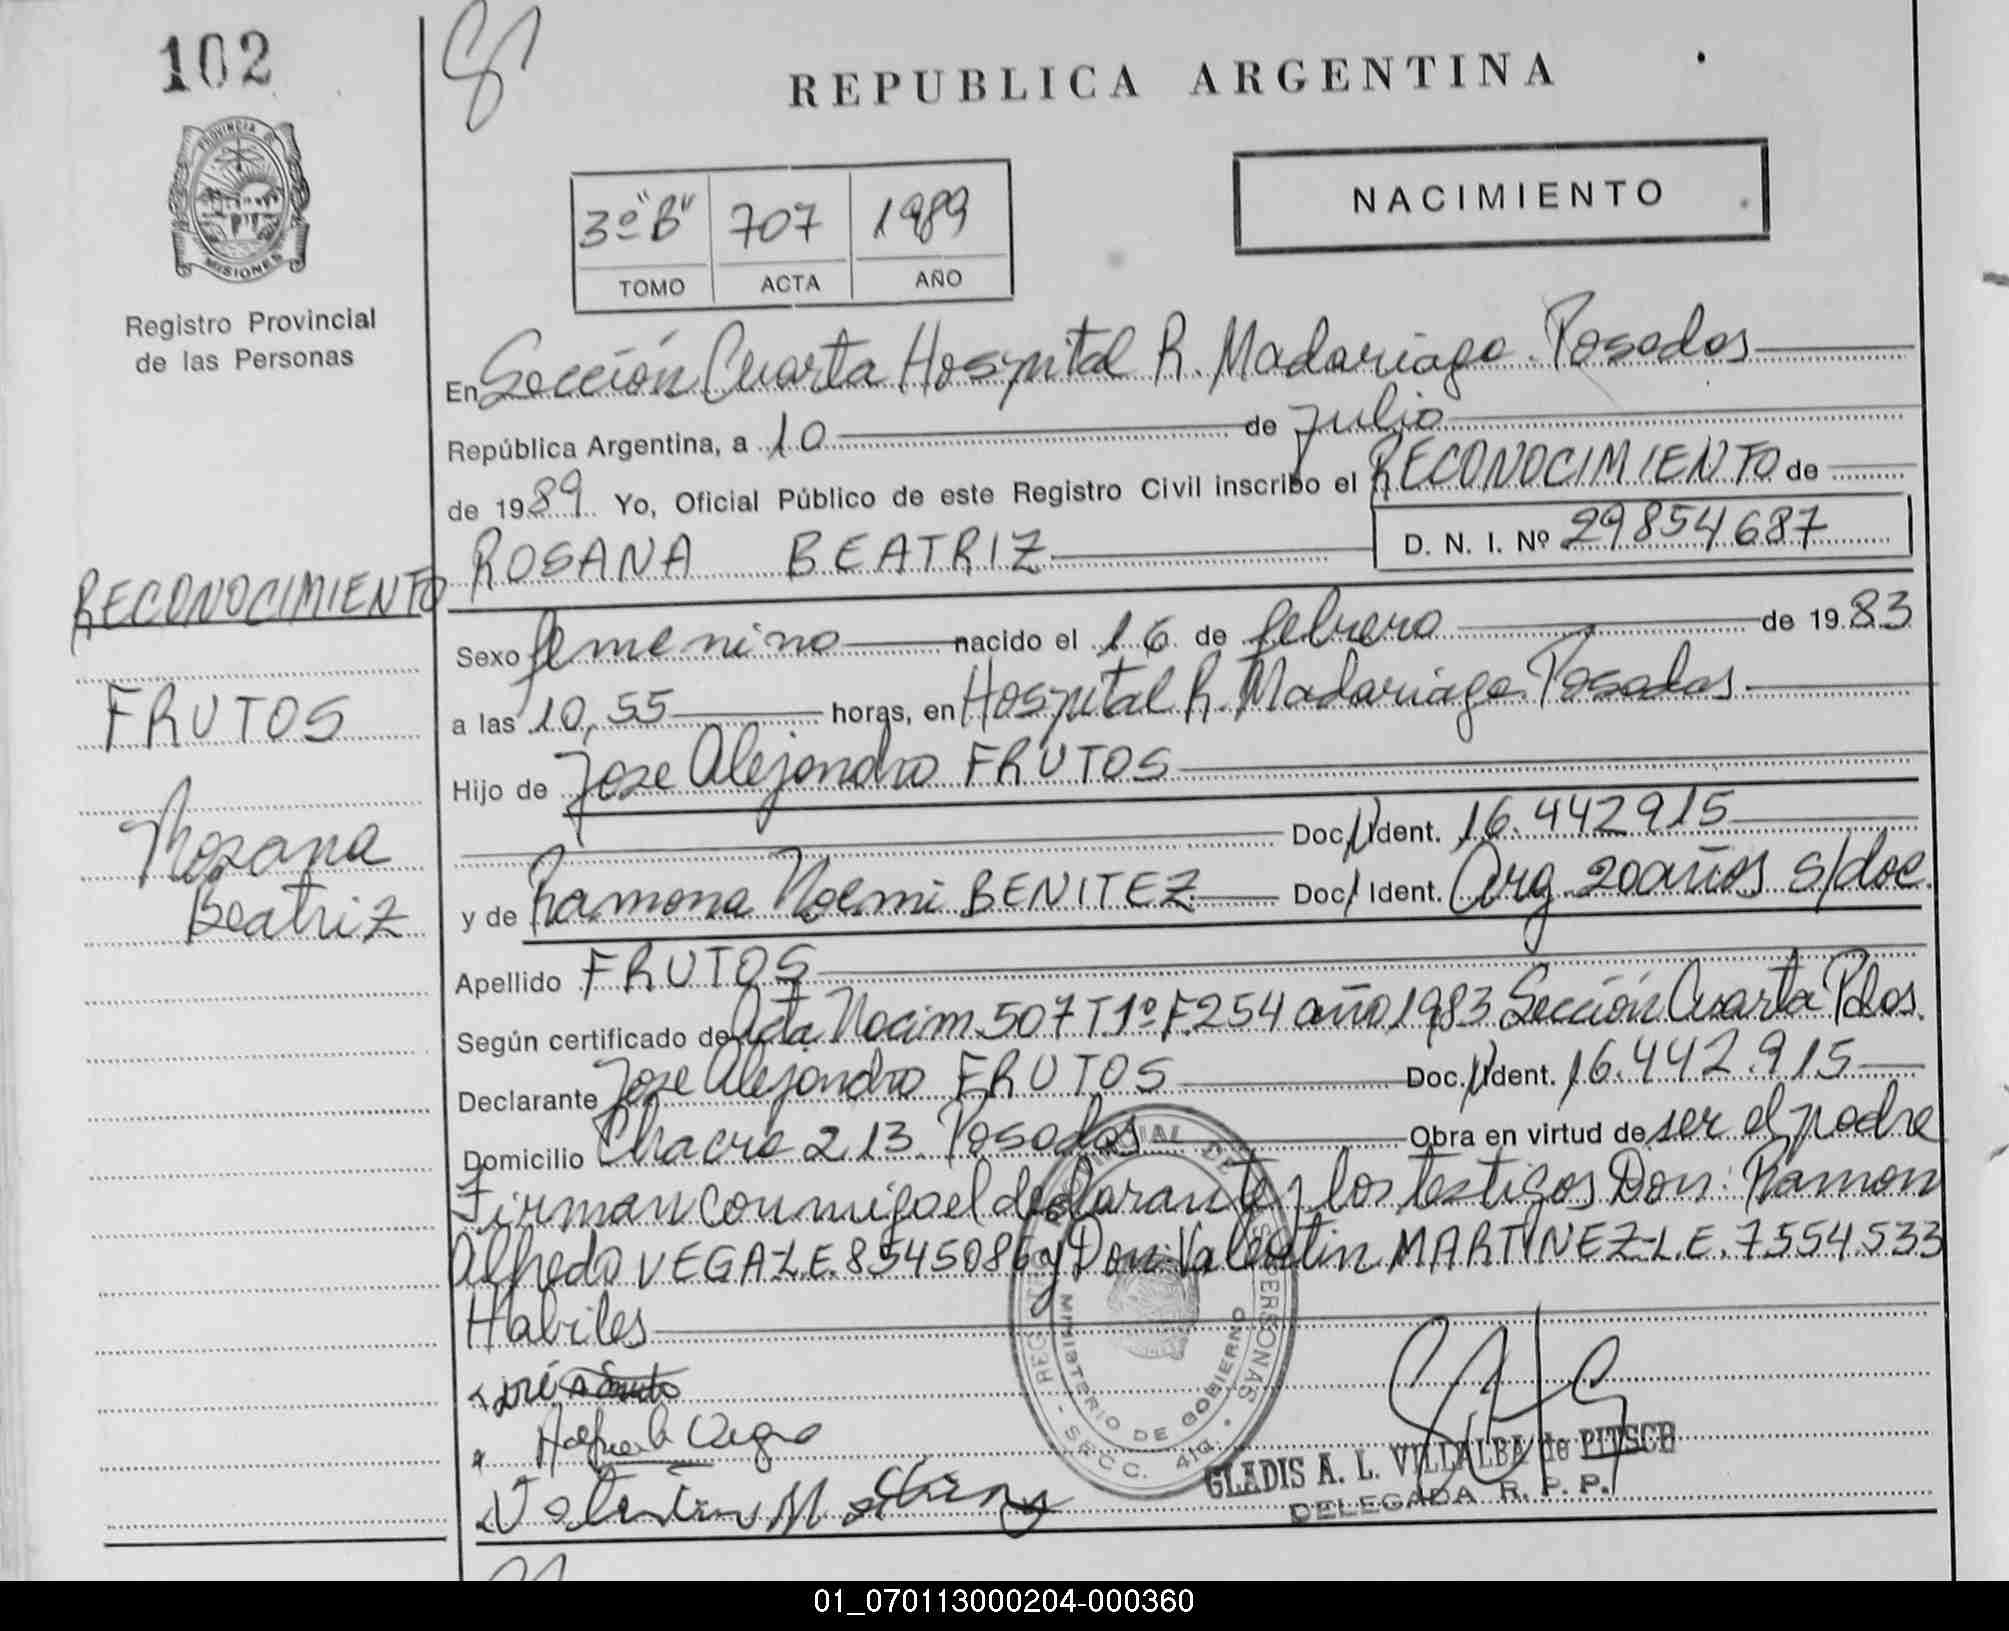 102
REPUBLICA ARGENTINA
NACIMIENTO
PROVINCIA DE
MISIONES
Registro Provincial
de las Personas
3º "B" 707 1989
TOMO ACTA AÑO
En Sección Cuarta Hospital R. Madariaga. Posadas
República Argentina, a 10 de Julio
de 1989 Yo, Oficial Público de este Registro Civil inscribo el RECONOCIMIENTO de
ROSANA BEATRIZ D. N. I. Nº 29854687
RECONOCIMIENTO
FRUTOS
Rosana
Beatriz
Sexo femenino nacido el 16 de febrero de 1983
a las 10,55 horas, en Hospital R. Madariaga Posadas
Hijo de Jose Alejandro FRUTOS
Doc. Ident. 16.442915
y de Ramona Noemi BENITEZ Doc. Ident. Arg 20 años s/doc.
Apellido FRUTOS
Según certificado de Acta Nacim. 507 T 1º F. 254 año 1983 Sección Cuarta Pdas.
Declarante Jose Alejandro FRUTOS Doc. Ident. 16.442.915
Domicilio Chacra 213. Posadas Obra en virtud de ser el padre
Firman conmigo el declarante y los testigos Don: Ramon
Alfredo VEGA-L.E. 8545086 y Don: Valentin MARTINEZ-L.E. 7554.533
Habiles
MINISTERIO DE GOBIERNO
SECC. 4ta.
Valentin Martinez
GLADIS A. L. VILLALBA de PITSCH
DELEGADA R. P. P.
01_070113000204-000360